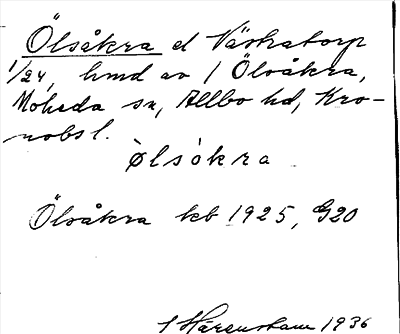 Ölsåkra el Västratorp
1/24, hmd av 1 Ölsåkra,
Moheda sn, Allbo hd, Kro-
nobs l.
ø̀lsòkra
Ölsåkra kb 1925, G20
I Härenstam 1936